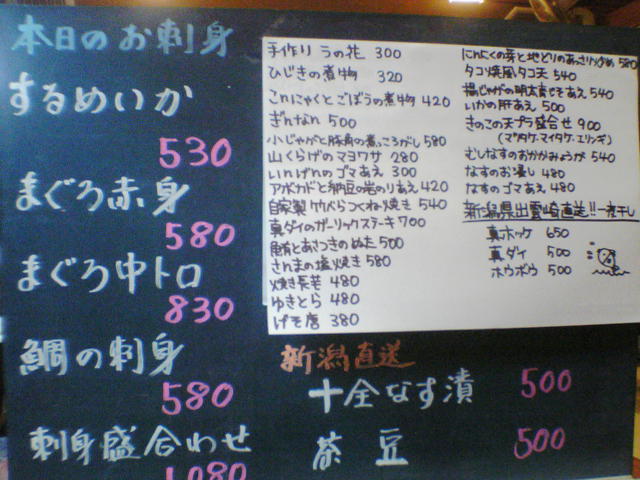 本日のお刺身
するめいか
530
まぐろ赤身
580
まぐろ中トロ
830
鯛の刺身
580
刺身盛合わせ
1080
手作り うの花 300
ひじきの煮物 320
こんにゃくとごぼうの煮物 420
ぎんなん 500
小じゃがと豚角の煮っころがし 580
山くらげのマヨワサ 280
いんげんのゴマあえ 300
アボカドと納豆の岩のりあえ 420
自家製 つくね焼き 540
真ダイのガーリックステーキ 700
とあさつきのぬた 500
さんまの塩焼き 580
焼き長芋 480
ゆきとら 480
げそ唐 380
にんにくの芽と地どりのあっさり炒め 580
タコ焼風タコ天 540
揚じゃがの明太青じそあえ 540
いかの肝あえ 500
きのこの天プラ盛合せ 900
(マツタケ・マイタケ・エリンギ)
むしなすのおかかみょうが 540
なすのお浸し 480
なすのゴマあえ 480
新潟県出雲崎直送!!一夜干し
真ホッケ 650
真ダイ 500
ホウボウ 500
新潟直送
十全なす漬 500
茶豆 500